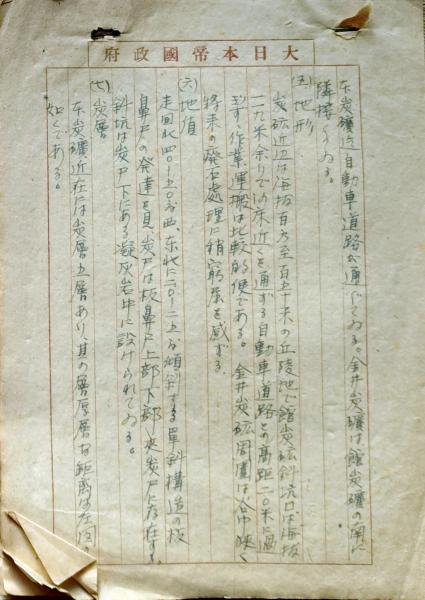 大日本帝國政府
本炭礦迄自動車道路が通じてゐる。金井炭礦は館炭礦の南に
隣接してゐる。
(五)地形
炭砿近辺は海抜百乃至百五十米の丘陵地で館炭砿斜坑口は海抜
一一九米余りで河床近くを通ずる自動車道路との高距二〇米
ず、作業運搬は比較的便である。金井炭砿周囲は谷巾狭く
将来の廃石處理に稍窮屈を感ずる。
(六)地値
走向北四〇―五〇度西、東北に二〇―二五度傾斜する單斜構造の板
鼻戸の発達を見、炭戸は板鼻戸上部下部炭戸に存在する
斜坑は炭戸下にある凝灰岩中に設けられてゐる。
(七)炭層
本炭礦近在には炭層五層あり、其の層厚層な距離は左図の
如くである。